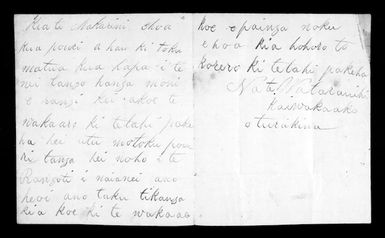 Kia te Makarini ehoa
kua pouri a hau ki toku
matua kua hapa i te
nei tanga hanga moni
e rangi kei akoe te
wakaaro ki tetahi pake
ha hei utu motoku pou
ri tanga hei noho i te
Rangoti i naianei ano
heoi ano taku tikanga
kia koe ki te wakaae
koe
noku
ehoa kia hohoro to
korero ki tetahi pakeha
Na te Watarauihi
kaiwakaako